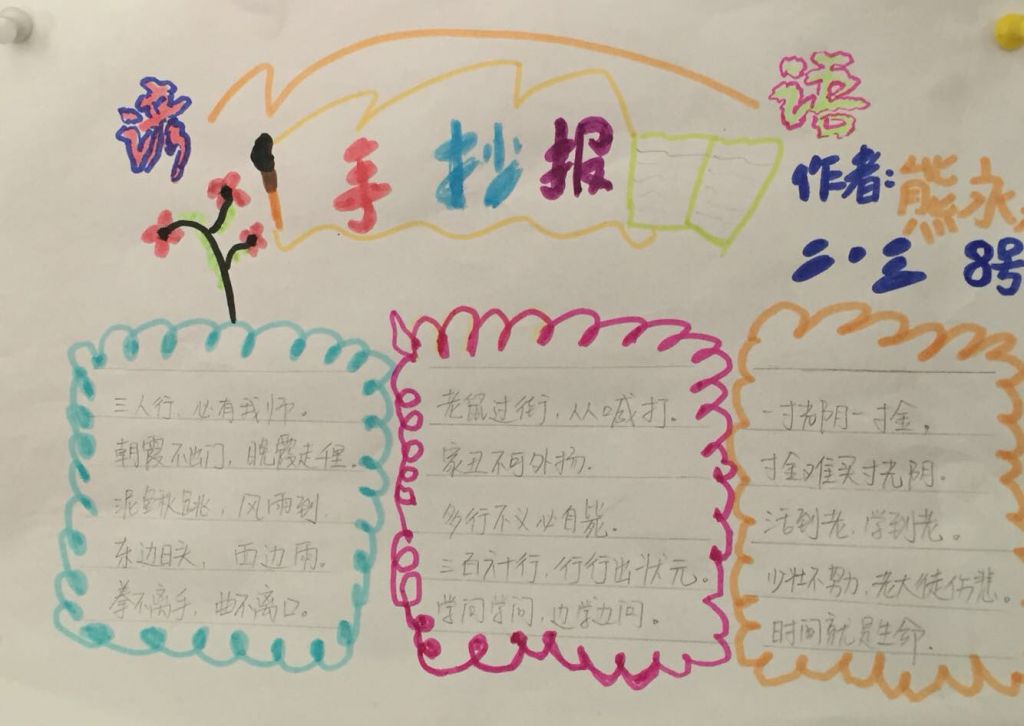 谚 语
手抄报
作者:熊永
二·三 8号
三人行,必有我师。
朝霞不出门,晚霞走千里.
泥鳅跳,风雨到.
东边日头,西边雨。
拳不离手,曲不离口。
老鼠过街,人人喊打.
家丑不可外扬.
多行不义必自毙.
三百六十行,行行出状元。
学问学问,边学边问。
一寸光阴一寸金,
寸金难买寸光阴.
活到老,学到老。
少壮不努力,老大徒伤悲。
时间就是生命.